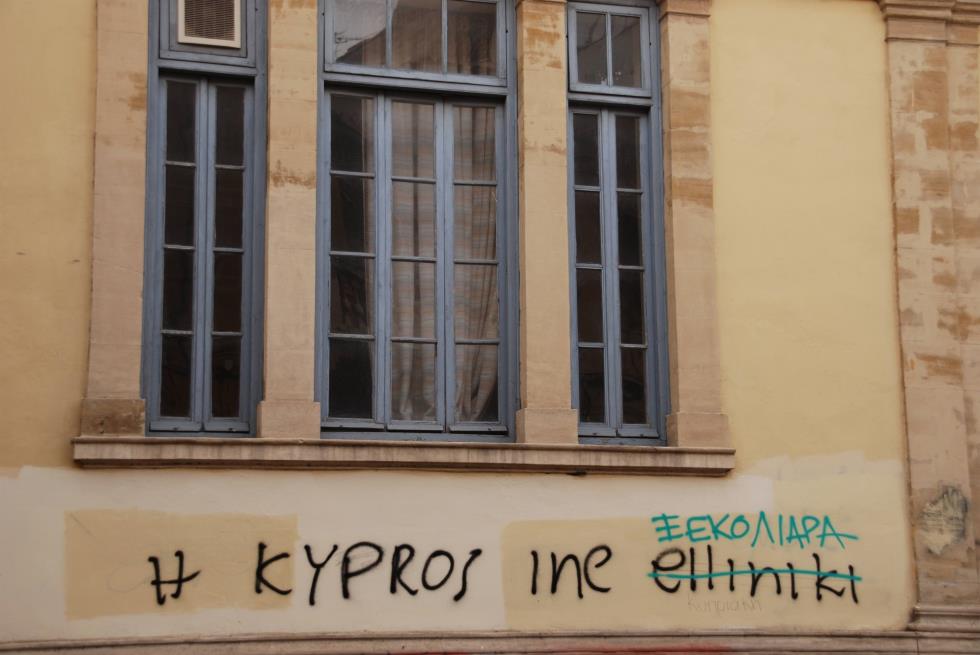 ΞΕΚΟΛΙΑΡΑ
H KYPROS INE elliniki
κυπριακη